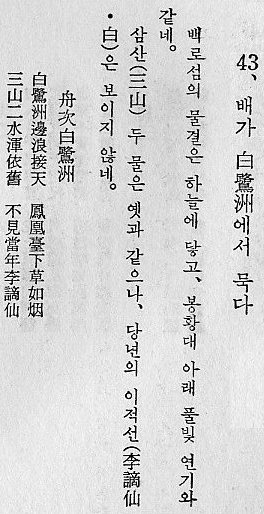 43、배가 白鷺洲에서 묵다
백로섬의 물결은 하늘에 닿고、봉황대 아래 풀빛 연기와
같네。
삼산(三山) 두 물은 옛과 같으나、당년의 이적선(李謫仙
・白)은 보이지 않네。
舟次白鷺洲
白鷺洲邊浪接天 鳳凰臺下草如烟
三山二水渾依舊 不見當年李謫仙